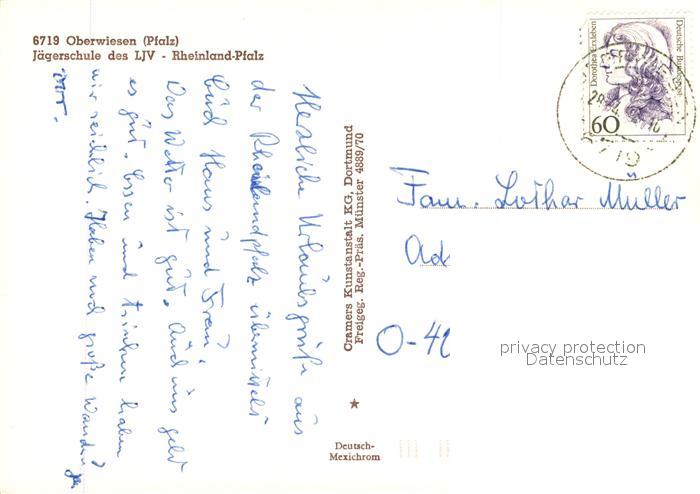 6719 Oberwiesen (Pfalz)
Jägerschule des LJV - Rheinland-Pfalz
Herzliche Urlaubsgrüße aus
der Rheinlandpfalz übermittelt
Euch Hans und Frau.
Das Wetter ist gut. Auch uns geht
es gut. Essen und trinken haben
wir reichlich. Haben und große
Cramers Kunstanstalt KG, Dortmund
Freigeg. Reg.-Präs. Münster 4889/70
Deutsch-
Mexichrom
Dorothea Erxleben
Deutsche Bundespost
60
Fam. Lothar Müller
Ad
O-42
privacy protection
Datenschutz